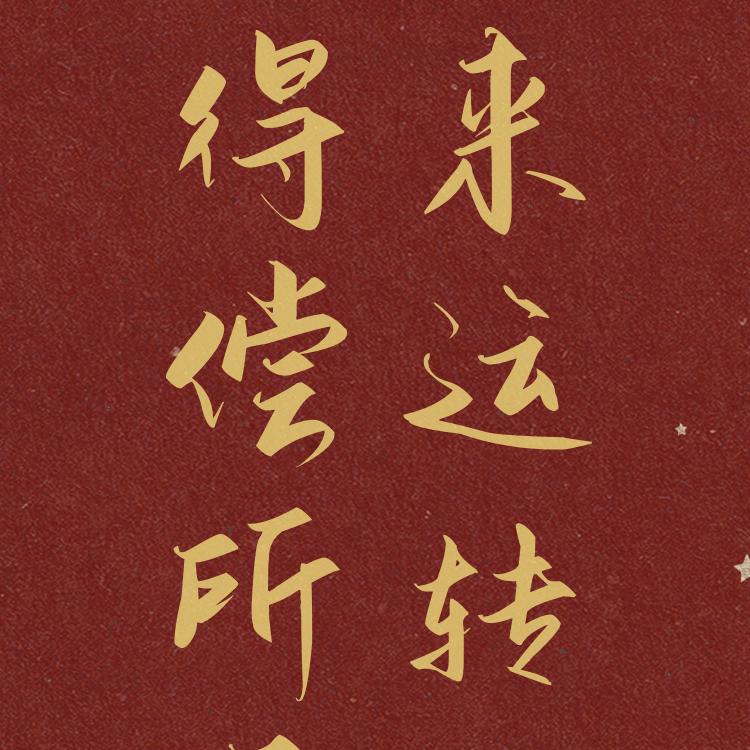 来运转
得偿所